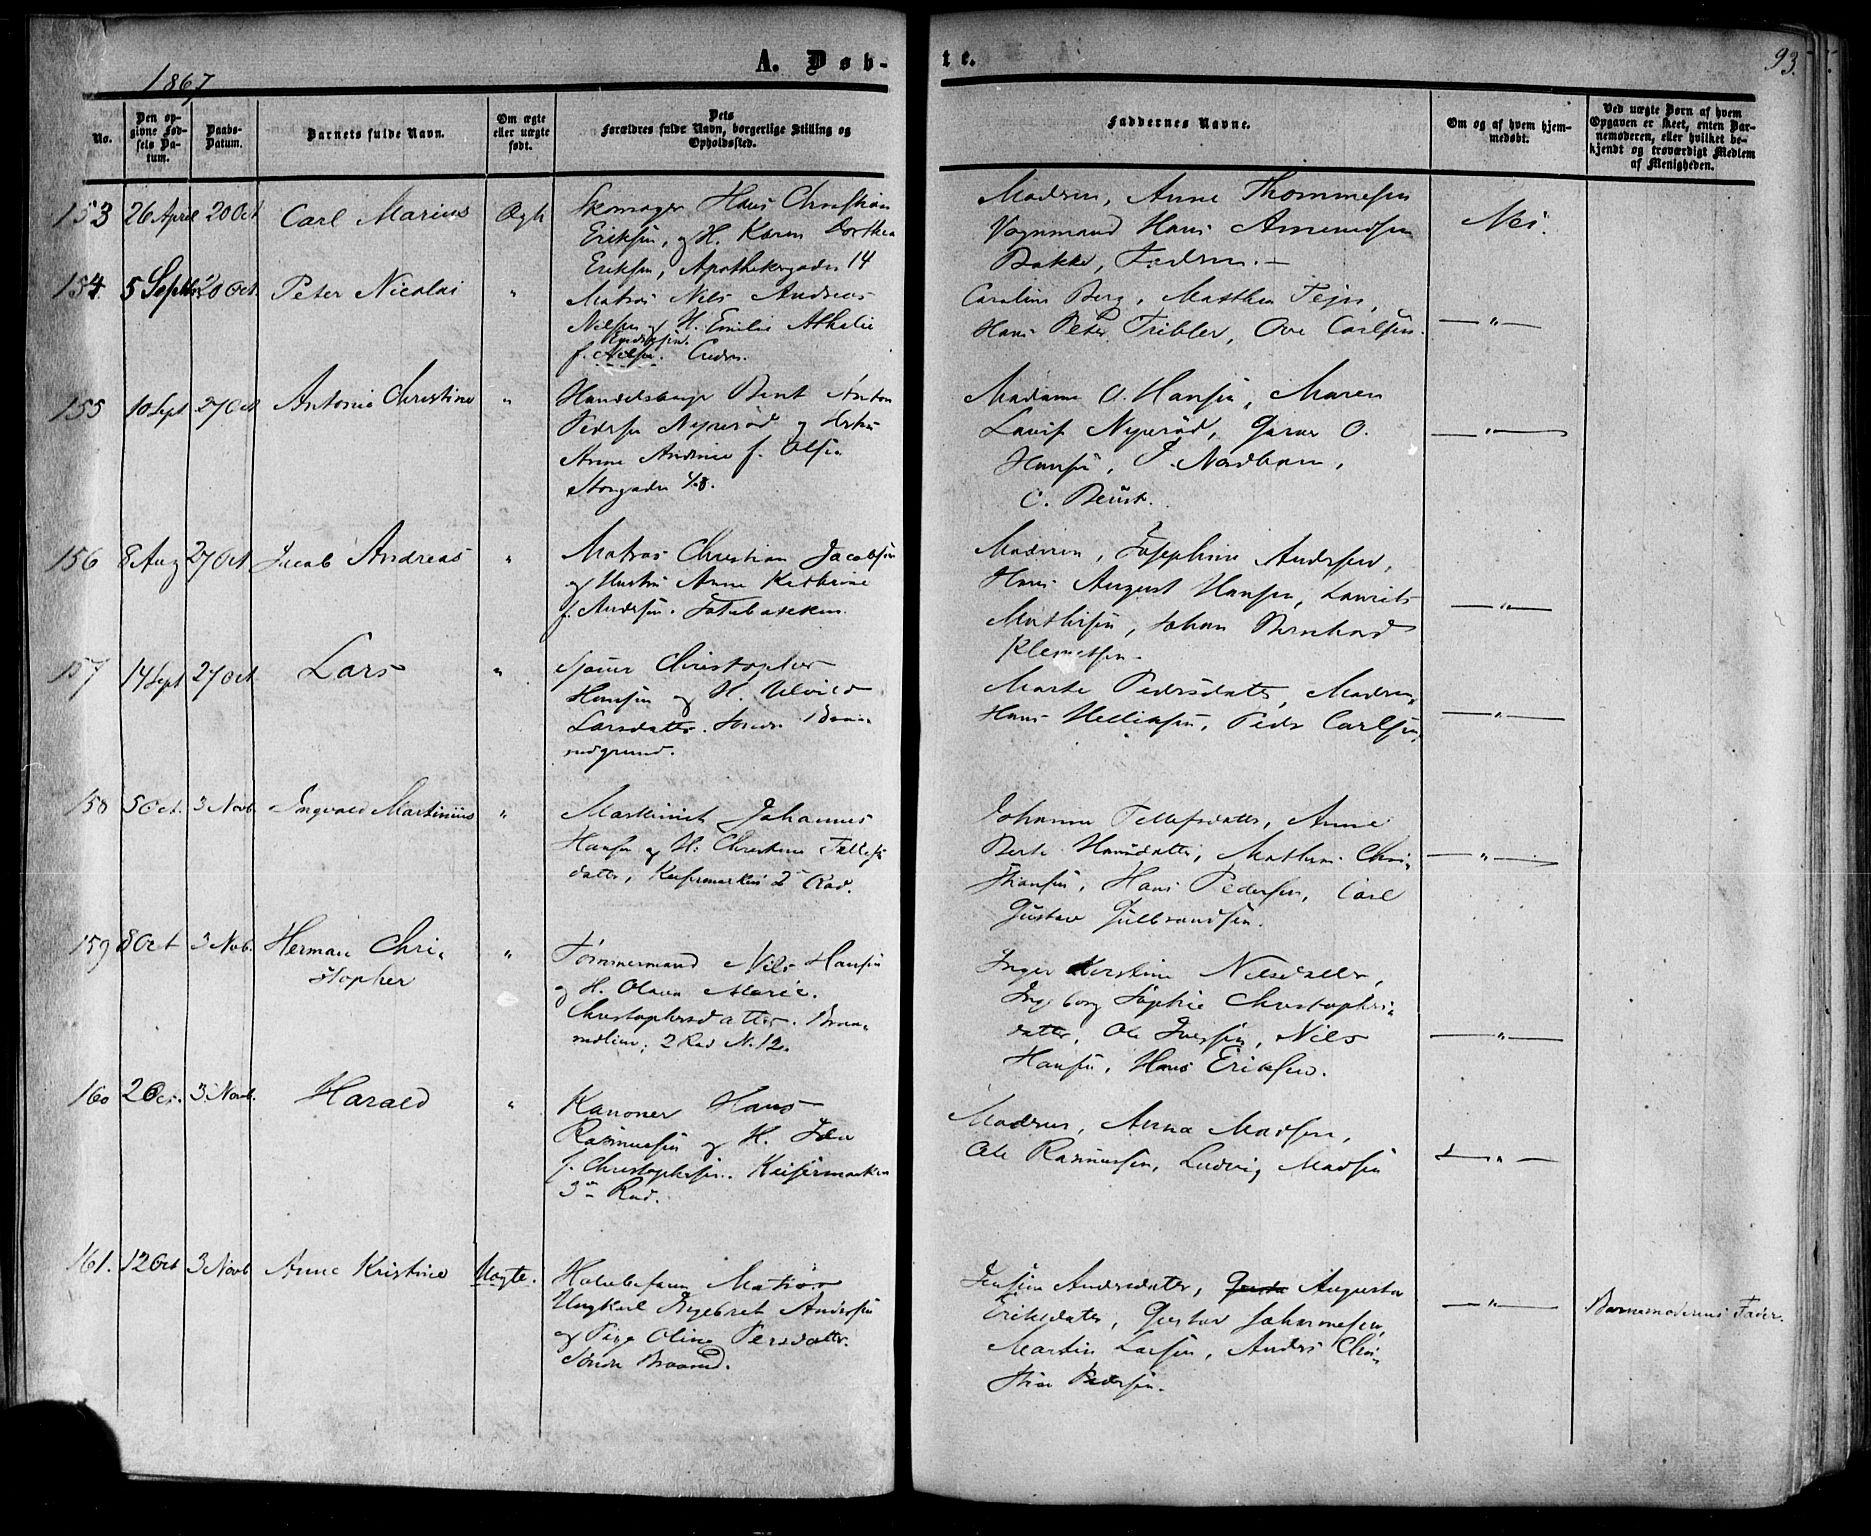 1867
A. Døb-
te.
93.
No.
Den opgivne Fødsels Datum.
Daabs-Datum.
Barnets fulde Navn.
Om ægte eller uægte født.
Dets Forældres fulde Navn, borgerlige Stilling og Opholdssted.
Faddernes Navne.
Om og af hvem hjemmedøbt.
Ved uægte Børn af hvem Opgaven er skeet, enten Barnemoderen, eller hvilket bekjendt og troværdigt Medlem af Menigheden.
153 26 April 20 Oct Carl Marius Ægte
Skomager Hans Christian
Eriksen, og H. Karen Dorthea
Eriksen, Apothekergaden 14
Madren, Anne Thommesen
Vognmand Hans Amundsen
Bakke, Fadren. —
Nei.
154. 5 Septbr 20 Oct. Peter Nicolai "
Matros Nils Andreas
Nilsen og H. Emilie Athalie
f. Nilsen.
Caroline Berg, Matthea
Hans Peter Tribler, Ove Carlsen.
— " —
155 10 Sept 27 Oct Antonie Christine "
Bent Anton
Pedersen Nyerød og Hustru
Anne Andrine f. Olsen
Storgaden 48.
Madame O. Hansen, Maren
Nyerød, Garver O.
Hansen, Nordbom,
C.
— " —
156 8 Aug 27 Oct. Jacob Andreas "
Matros Christian Jacobsen
og Hustru Anne Kathrine
f. Andersen.
Madren, Josephine Andersen,
Hans August Hansen, Laurits
Mathisen, Johan Bernhard
Klemetsen.
— " —
157 14 Sept 27 Oct. Lars "
Christopher
Hansen og H.
Larsdatter. Søndre Braa-
rudgrund.
Marte Pedersdatter, Madren,
Hans Peder Carlsen,
— " —
158 5 Oct. 3 Novb. Ingvald Martinius "
Maskinist Johannes
Hansen og H. Christine Tellefs
datter, 2 Rad.
Johanne Tellefsdatter, Anne
Berte Hansdatter, Chri-
stiansen, Hans Pedersen, Carl
Gustav Gulbrandsen.
— " —
159 8 Oct 3 Nvb. Herman Chri- "
stopher
Tømmermand Nils Hansen
og H. Olava Marie
Christophersdatter. Braa-
rudlien, 2 Rad N. 12.
Inger Kirstine Nilsdatter,
Ingeborg Sophie Christophers-
datter, Ole Iversen, Nils
Hansen, Hans Eriksen.
— " —
160 2 Oct. 3 Novb. Harald "
Kanoner Hans
Rasmussen og H. Ida
f. Christophersen. Keisermarken
3die Rad.
Madren, Anna Madsen,
Ole Rasmussen, Ludvig Madsen
— " —
161. 12 Oct 3 Novb Anne Kristine Uægte.
Matros
Ungkarl Ingebret Andersen
og Pige Oline Persdatter.
Søndre Braarud.
Andersdatter, Augusta
Eriksdatter, Gustav Johannesen,
Martin Larsen, Anders Chri-
stian Pedersen.
— " —
Barnemoderens Fader.